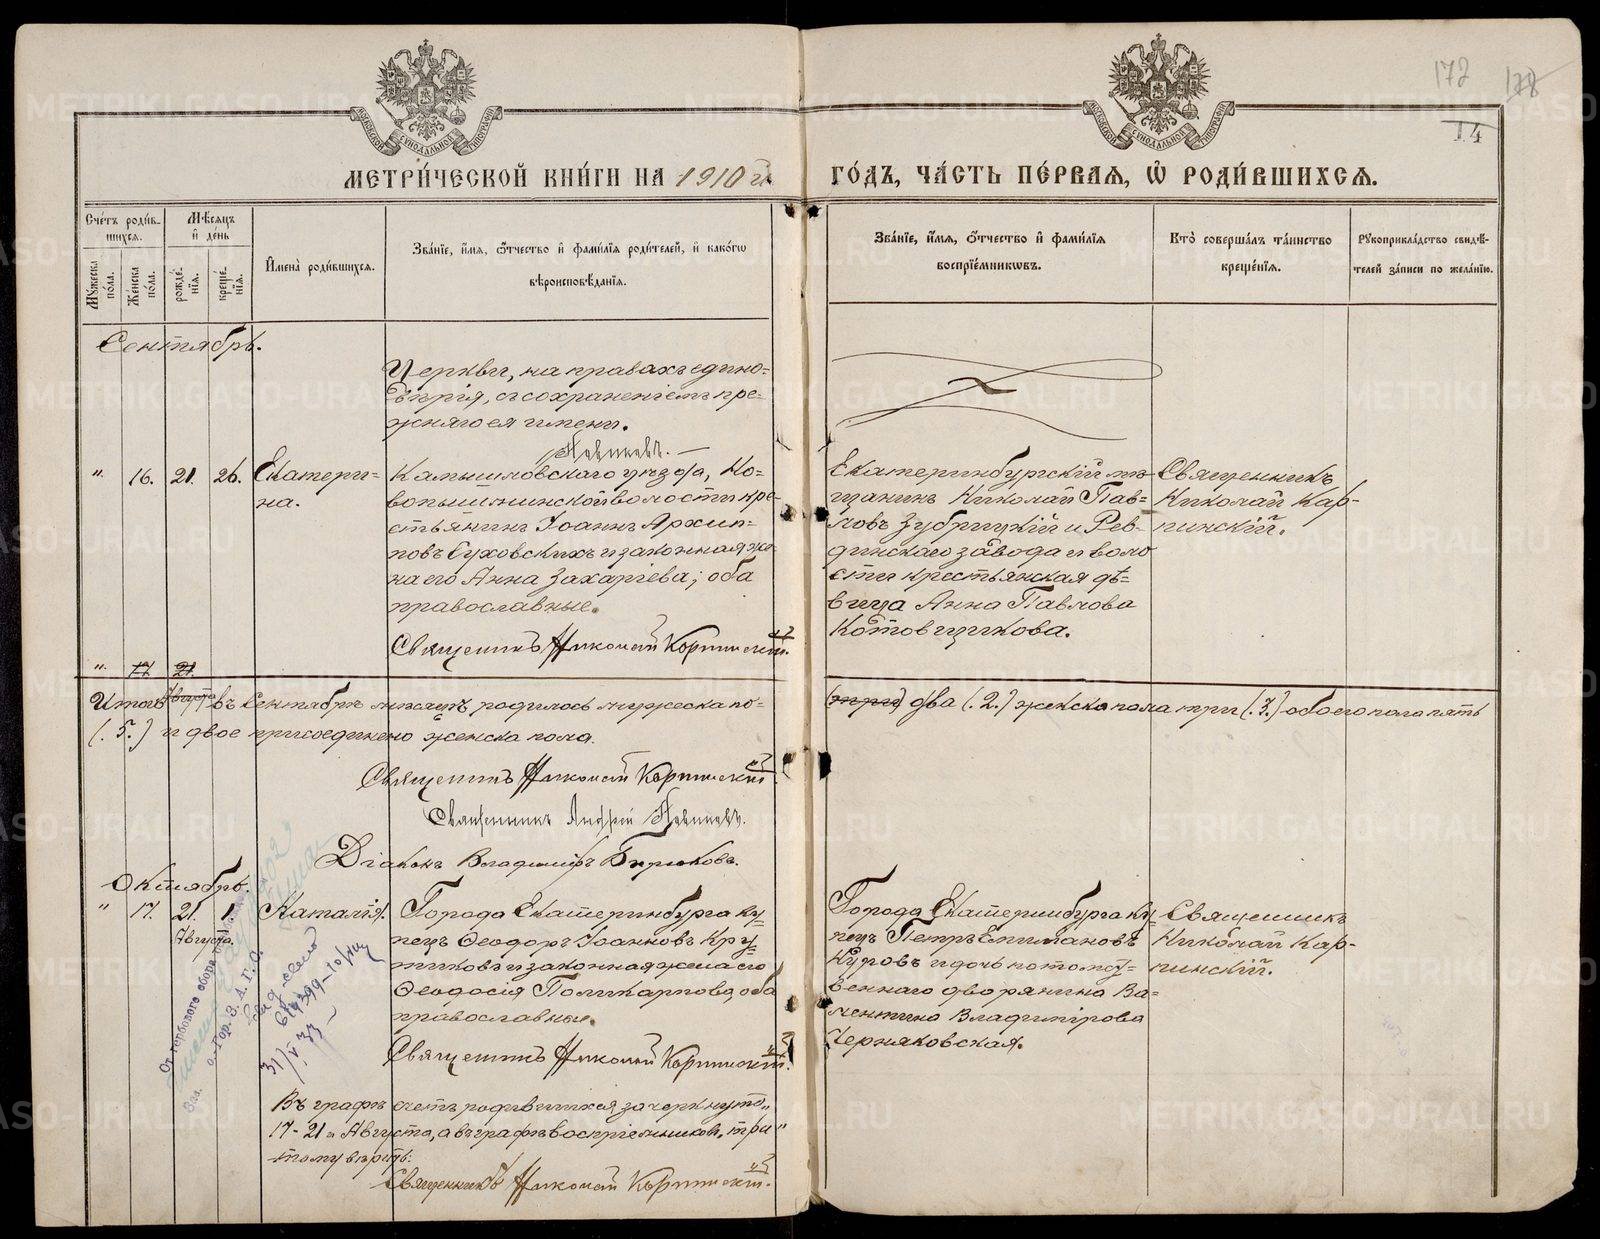 172 178
14
МЕТРИ́ЧЕСКОЙ КНИ́ГИ НА 1910 й ГО́ДЪ, ЧА́СТЬ ПЕ́РВАЯ, Ѡ РОДИ́ВШИХСЯ.
Сче́тъ роди́в-
шихся.
Му́жеска по́ла.
Же́нска по́ла.
Мѣ́сяцъ и де́нь
рожде́-нія.
креще́-нія.
И́мена̀ роди́вшихся.
Зва́ніе, и́мя, ѻ́тчество и фами́лія роди́телей, и како́гѡ
вѣроисповѣ́данія.
Зва́ніе, и́мя, ѻ́тчество и фами́лія
воспріе́мниковъ.
Кто̀ соверша́лъ та́инство
креще́нія.
Рукоприкла́дство свидѣ́-
телей за́писи по жела́нію.
Сентябрь.
Церкви, на правахъ едино-
вѣрія, съ сохраненіемъ пре-
жняго ея имени.
" 16. 21. 26. Екатери-
на.
Камышловскаго уѣзда, Но-
вопышминской волости кре-
стьянинъ Іоаннъ Архип-
повъ Суховскихъ и законная же-
на его Анна Захаріева; оба
православные.
Священникъ Николай Карпинскій.
Екатеринбургскій мѣ-
щанинъ Николай Пав-
ловъ Зубрицкій и Рев-
динскаго завода и воло
сти крестьянская дѣ-
вица Анна Павлова
Котовщикова.
Священникъ
Николай Кар-
пинскій.
" 17 21.
Итого Августа въ Сентябрѣ мѣсяцѣ родилось мужеска по- (три) два (.2.) женска пола три (.3.) обоего пола пять
(.5.) и двое присоединено женска пола.
Священникъ Николай Карпинскій.
Священникъ Андрей
Діаконъ Владиміръ Бирюковъ.
Октябрь.
" 17. 21. 1. Наталія.
Августа.
Города Екатеринбурга ку-
пецъ Ѳеодоръ Іоанновъ Кру-
тиковъ и законная жена его
Ѳеодосія Поликарпова, оба
православные.
Священникъ Николай Карпинскій.
Города Екатеринбурга ку-
пецъ Петръ Епимановъ
Куровъ и дочь потомст-
веннаго дворянина Ва-
лентина Владимірова
Черняковская.
Священникъ
Николай Кар-
пинскій.
От гербового сбора
31/V 33
Въ графѣ счетъ родившихся зачеркнуто „
17-21 и Августа, а въ графѣ воспріемниковъ „три"
тому вѣрить:
Священникъ Николай Карпинскій.
METRIKI.GASO-URAL.RU